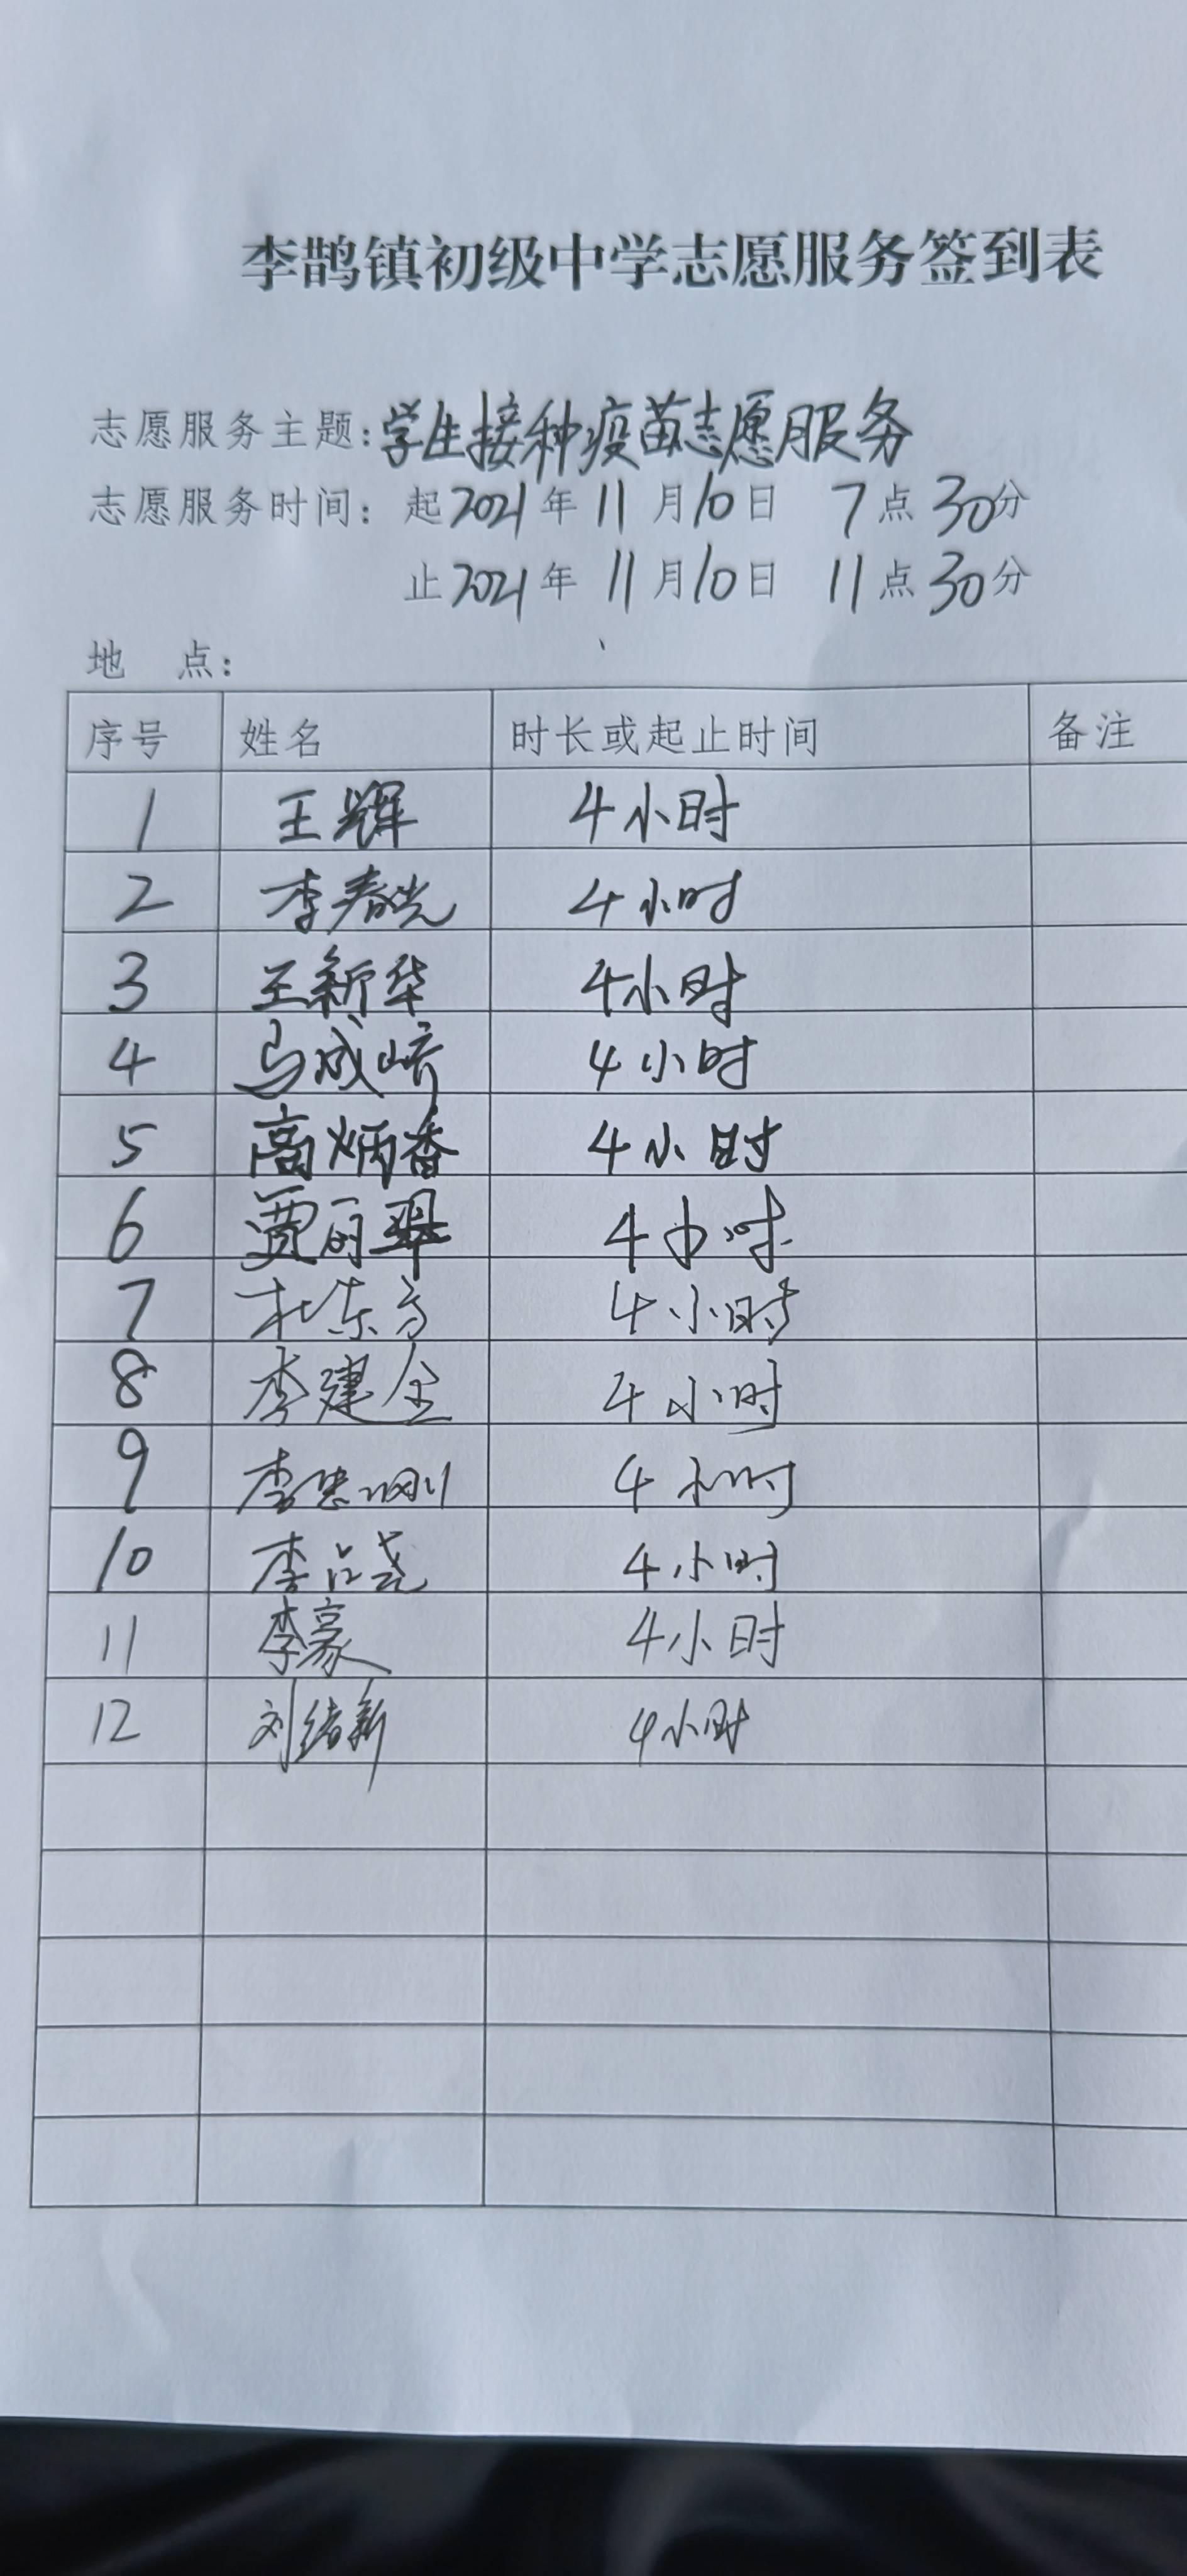 李鹊镇初级中学志愿服务签到表
志愿服务主题:学生接种疫苗志愿服务
志愿服务时间: 起2021年11月10日 7点30分
止2021年11月10日 11点30分
地 点:
序号 姓名 时长或起止时间 备注
1 王辉 4小时
2 李春光 4小时
3 王新华 4小时
4 马成峤 4小时
5 高炳香 4小时
6 贾丽翠 4小时
7 杜东方 4小时
8 李建全 4小时
9 李忠刚 4小时
10 李品尧 4小时
11 李豪 4小时
12 刘绪新 4小时